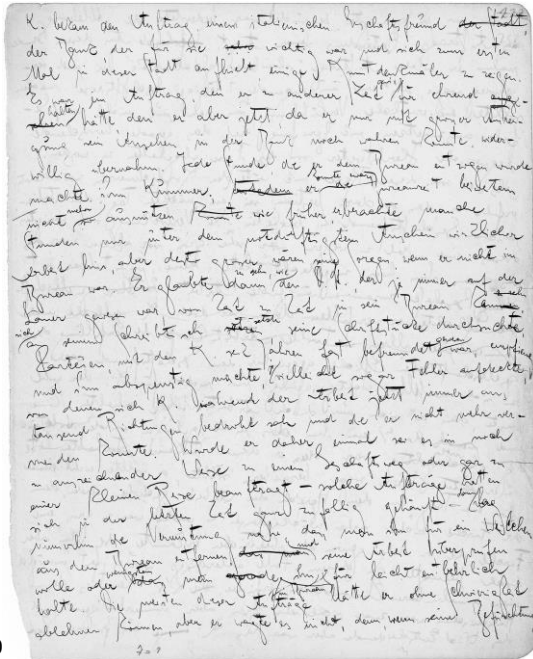 K. bekam den Auftrag einem italienischen Geschäftsfreund der Stadt,
der Bank der für sie sehr wichtig war und sich zum ersten
Mal in dieser Stadt aufhielt einige Kunstdenkmäler zu zeigen.
Es war ein Auftrag, den er zu anderer Zeit gewiss für ehrend
gehalten hätte den er aber jetzt, da er nur mit grosser Anstren-
gung sein Ansehen in der Bank noch wahren konnte, wider-
willig übernahm. Jede Stunde die er dem Bureau entzogen wurde
machte ihm Kummer, trotzdem er konnte zwar die Bureauzeit bei weitem
nicht mehr so ausnützen konnte wie früher, er brachte manche
Stunden nur unter dem notdürftigsten Anschein wirklicher
Arbeit hin, aber desto grösser waren seine Sorgen, wenn er nicht im
Bureau war. Er glaubte dann zu sehn, wie der der ja immer auf der
Lauer gewesen war von Zeit zu Zeit in sein Bureau kam
sich an seinen Schreibtisch setzte seine Schriftstücke durchsuchte
Parteien mit denen K. seit Jahren fast befreundet gewesen war, empfieng
und ihm abspenstig machte vielleicht sogar Fehler aufdeckte,
von denen sich K. während der Arbeit jetzt immer aus
tausend Richtungen bedroht sah und die er nicht mehr ver-
meiden konnte. Wurde er daher einmal sei es in noch
so auszeichnender Weise zu einem Geschäftsweg oder gar zu
einer kleinen Reise beauftragt – solche Aufträge hatten
sich in der letzten Zeit ganz zufällig gehäuft – dann lag
immerhin die Vermutung nahe dass man ihn für ein Weilchen
aus dem Bureau entfernen und seine Arbeit überprüfen
wolle oder wenigstens dass man im Bureau ihn für leicht entbehrlich
halte Die meisten dieser Aufträge hätte er ohne Schwierigkeit
ablehnen können aber er wagte es nicht, denn wenn seine Befürchtung